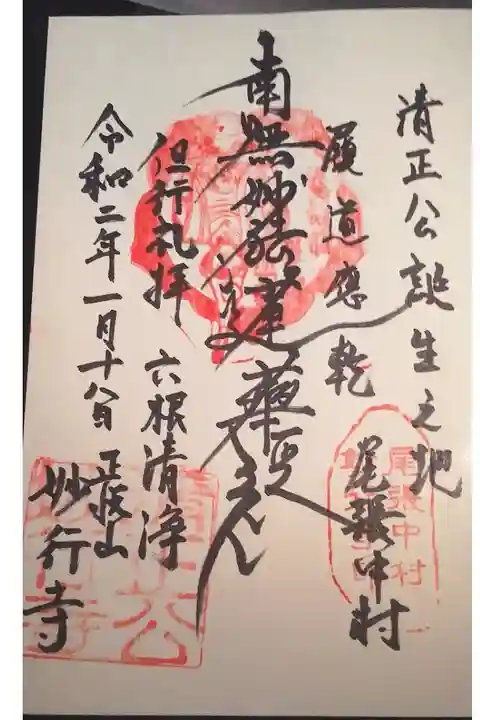 清正公誕生之地
尾張中村
履道應乾
南無妙法蓮華経
但行礼拝 六根清浄
令和二年一月十八日 正悦山
妙行寺
尾張中村